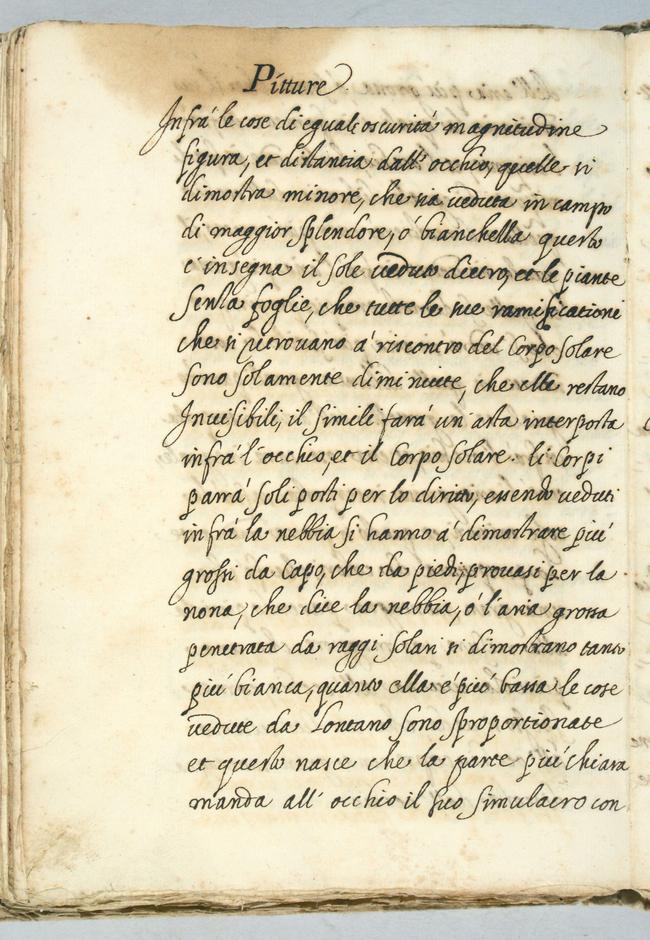 Pitture
Infrà le cose di eguale oscurità magnitudine
figura, et distantia dall' occhio, quelle si
dimostra minore, che sia veduta in campo
di maggior splendore, ò bianchella questo
c'insegna il sole veduto dietro, et le piante
senla foglie, che tutte le sue ramificationi
che si ritrovano à riscontro del Corpo solare
sono solamente diminuite, che elle restano
Invisibili, il simile farà un'asta interposta
infrà l'occhio, et il Corpo solare. li Corpi
parrà soli posti per lo diritto, essendo veduti
infrà la nebbia si hanno à dimostrare più
grossi da Capo, che da piedi, provasi per la
nona, che dice la nebbia, ò l'aria grossa
penetrata da raggi solari si dimostrano tanto
più bianca, quanto ella è più bassa le cose
vedute da lontano sono sproportionate
et questo nasce che la parte più chiara
manda all' occhio il suo simulacro con